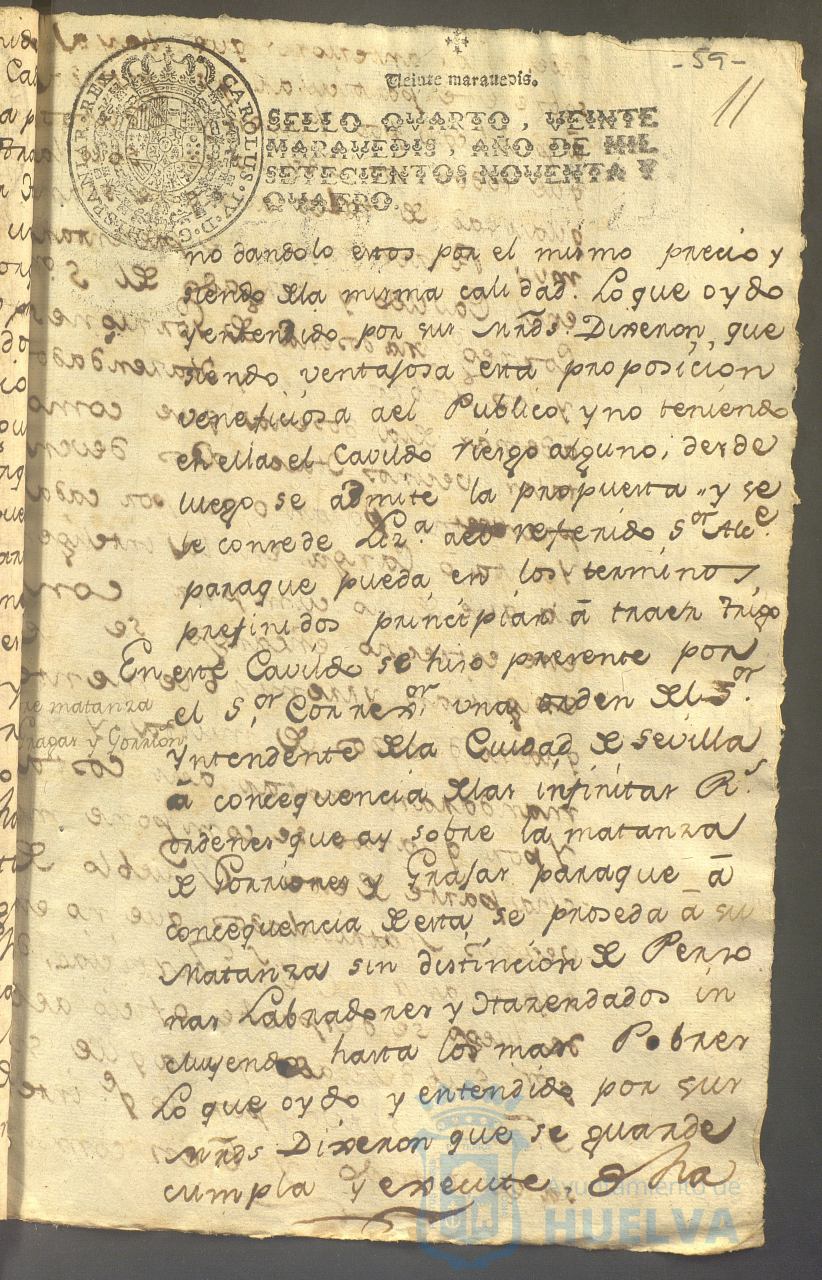 - 59 -
11
Veinte maravedis.
SELLO QVARTO, VEINTE
MARAVEDIS, AÑO DE MIL
SETECIENTOS NOVENTA Y
QVATRO.
CAROLUS · IV · D · G · HISPANIAR · REX
no dandolo estos por el mismo precio y
siendo dela misma calidad. Lo que oydo
y entendido por sus Mrds Dixeron, que
siendo ventajosa esta proposicion
veneficiosa ael Publico y no teniendo
en ella el Cavildo riesgo alguno, desde
luego se admite la propuesta y se
le consede Liz.ª ael referido S.or Alc.e
para que pueda en los terminos
prefinidos principiar â traer trigo
En este Cavildo se hiso presente por
re matanza
el S.or Corren.or una orden del S.or
Pragar y Gorrion
Yntendente dela Cuidad de Sevilla
â consequencia delas infinitas R.s
ordenes que ay sobre la matanza
de Gorriones y Grajas para que â
consequencia de esta se proseda â su
Matanza sin distincion de Perso
nas Labradores y Hasendados in
cluyendo hasta los mas Pobres
Lo que oydo y entendido por sus
Mrds Dixeron que se guarde
cumpla y execute dha
Ayuntamiento de
HUELVA